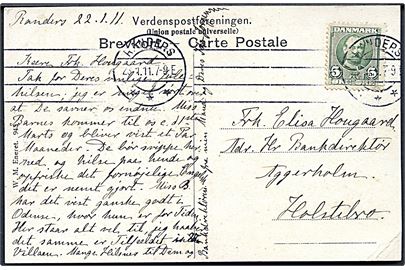 Randers 22.1.11.
Verdenspostforeningen.
(Union postale universelle)
Brevkort. Carte Postale
Kære Frk. Hougaard
Tak for Deres venlige
hilsen; jeg er
at De savner os endnu. Miss
Barnes kommer til os c. 1ste
Marts og bliver vist et Par
Maaneder. De bør
ned og hilse paa hende og
opfriske det fornøjelige
det er nemt gjort. Miss B
har det vist ganske godt i
Odense, hvor hun er for Tiden.
Her staar alt vel til, jeg haaber
det samme er Tilfældet
Villaen. Mange Hilsner til Dem og
Bankdirektørens fra min Mand og
W. & M. Eneret.
DANMARK
5 5
RANDERS
22.1.11. 7-9 E
Frk. Elisa Hougaard
Adr. Hr. Bankdirektør
Aggerholm.
Holstebro.